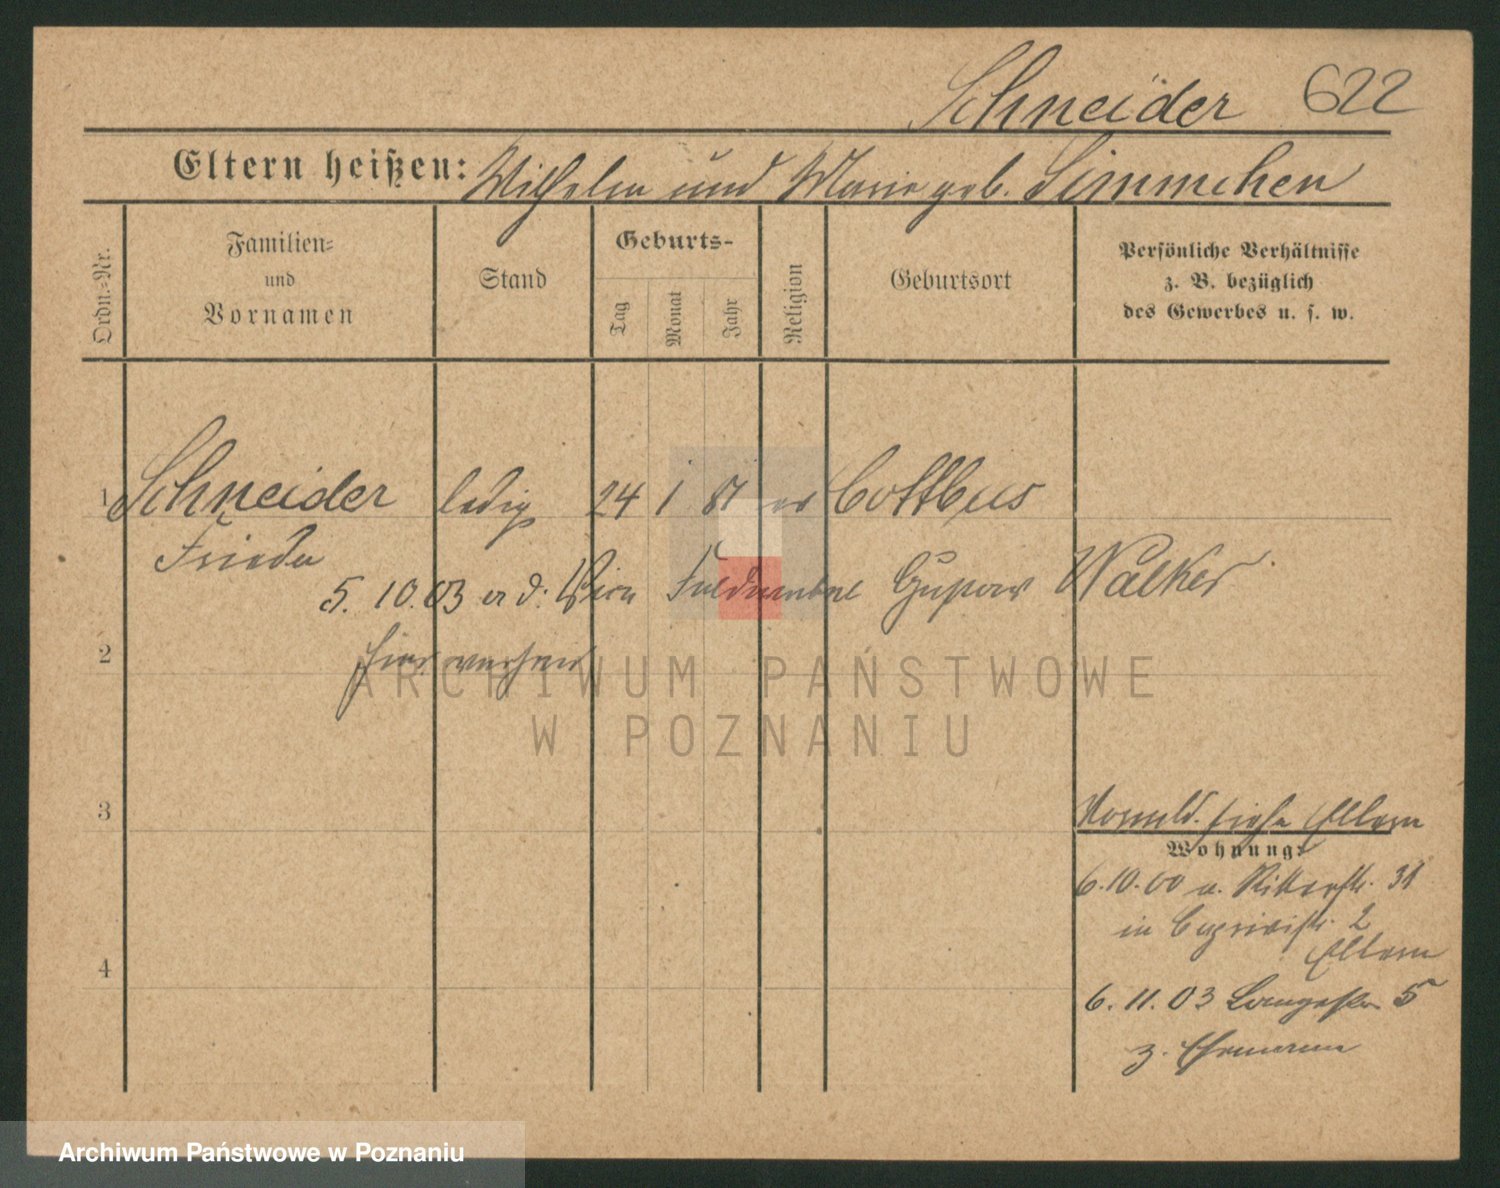 Schneider 622
Eltern heißen: Wilhelm und Marie geb. Simmchen
Ordn.-Nr.
Familien-
und
Vornamen
Stand
Geburts-
Tag
Monat
Jahr
Religion
Geburtsort
Persönliche Verhältnisse
z. B. bezüglich
des Gewerbes u. s. w.
1 Schneider ledig 24 1 81 ev Cottbus
Frieda
5. 10. 03 Gustav Walker
2 hier
ARCHIWUM PAŃSTWOWE
W POZNANIU
3
siehe Eltern
Wohnung:
6.10.00 v. Ritterstr. 31
in Caprivistr. 2
Eltern
4
6. 11. 03 5
z. Ehemann
Archiwum Państwowe w Poznaniu